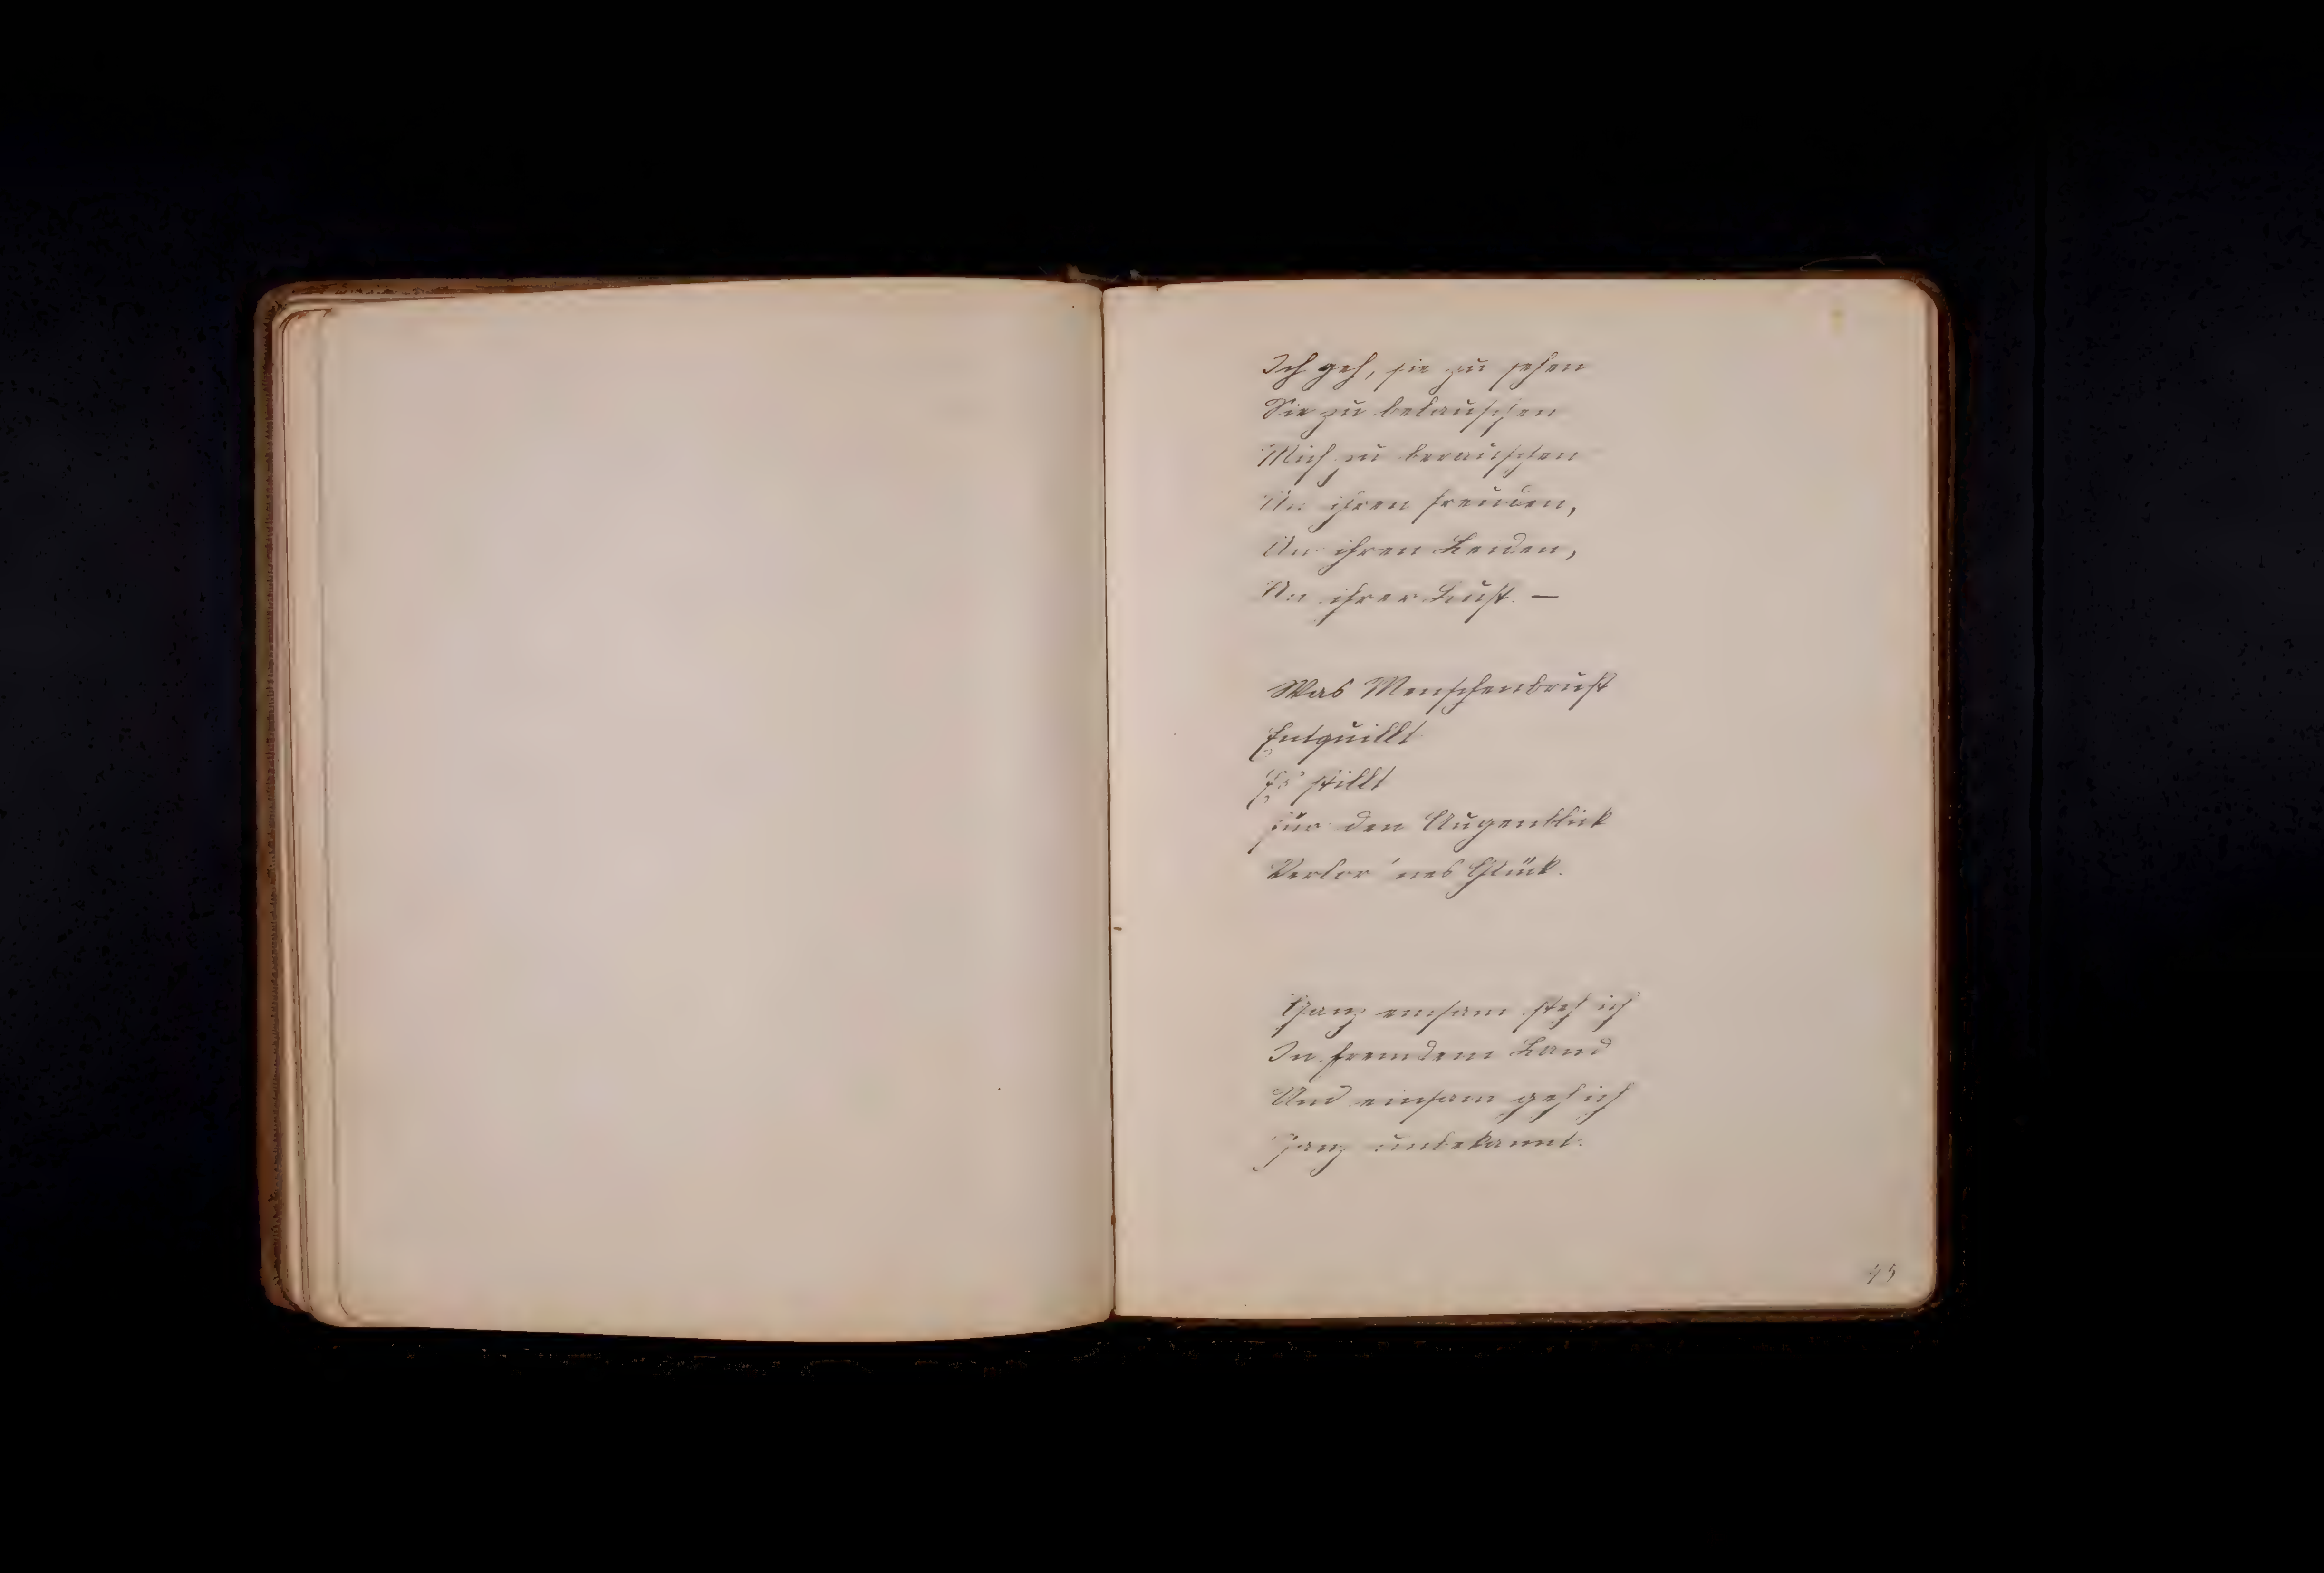 Ich geh, sie zu sehen
Sie zu belauschen
Mich zu berauschen
An ihren Freuden,
An ihren Leiden,
An ihrer Lust. —
Was Menschenbrust
Entquillt
Es stillt
Für den Augenblick
Verlor'nes Glück.
Ganz einsam steh ich
In fremdem Land
Und einsam geh ich
Ganz unbekannt.